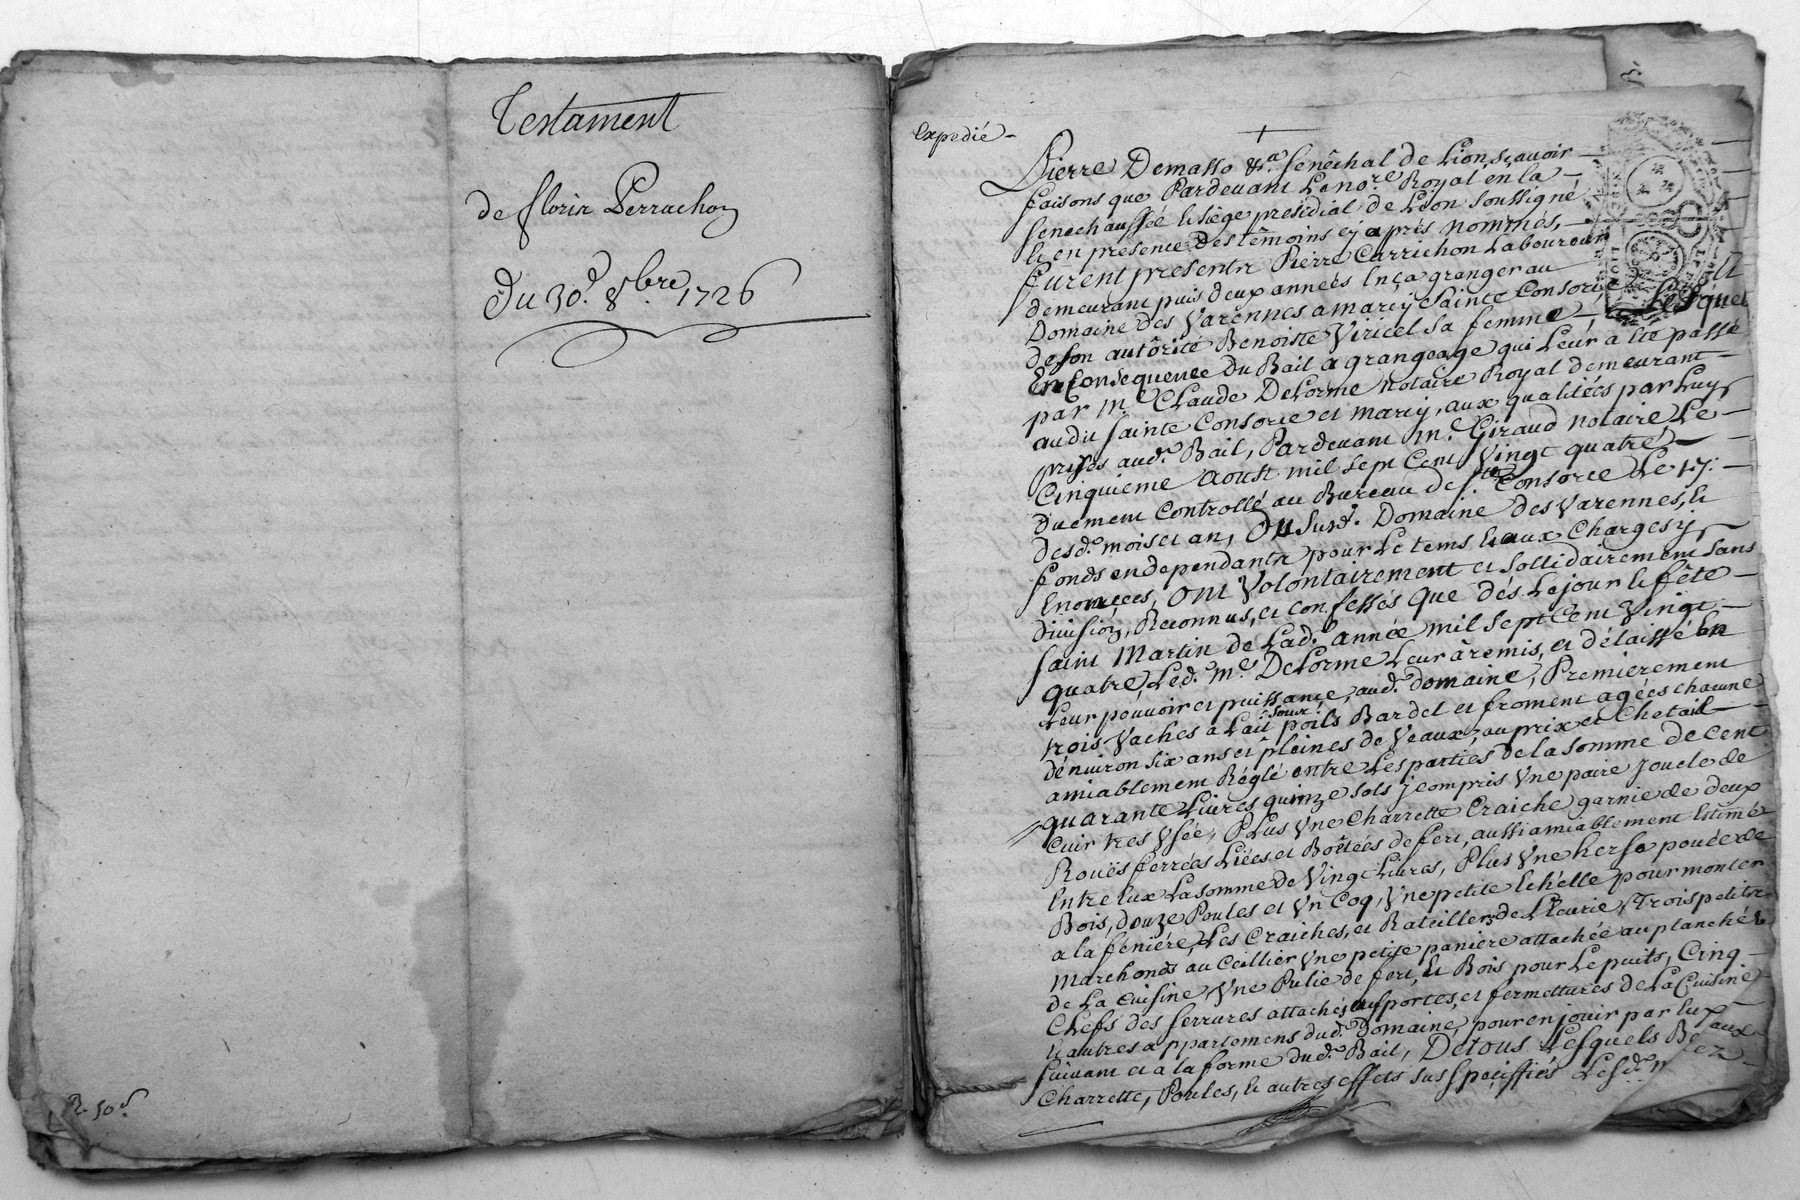 Testament
de florir Perrachon
du 30.e 8.bre 1726
R. 50.s
Expedié -
Pierre Demasso &.a Senêchal de Lion, sçavoir
faisons que Pardevant Le no.re Royal en la
senechaussée & siège presidial de Lion soussigné
& en presence des têmoins cy après nommés,
furent presents Pierre Carrichon Laboureur
demeurant puis deux années En ça granger au
Domaine des Varênnes a marcy Sainte Consorce, & Léquel
de son autôrité Benoiste Viricel sa femme
En Consequence du Bail à grangeage qui Leur a été passé
par M.e Claude DeLorme notaire Royal demeurant
audit sainte Consorce et marcy, aux qualitées par Luy
prises aud.t Bail, Pardevant M.e Giraud notaire Le
Cinquieme aoust mil sept Cent Vingt quatre,
duement Controllé au Bureau de s.te Consorce Le 17.
desd.s mois et an, Du susd.t Domaine des Varennes, &
fonds en dependants pour Le tems & aux Charges y
Enoncées, Ont Volontairement et sollidairement sans
division, Reconnus, et confessés Que dés Le jour & fête
saint Martin de Lad.e année mil sept Cent Vingt
quatre, Led.t M.e DeLorme Leur à remis, et délaissé En
Leur pouvoir et puissance, aud.t domaine, Premierement
trois Vaches à Lait sous poils Bardet et froment agées chacune
d'énuiron six ans et pleines de Veaux, au prix et Chetail
amiablement Réglé entre Les parties de la somme de Cent
quarante Livres quinze sols y compris Vne paire Joucle de
Cuir tres Vsée, Plus Vne Charrette Craiche garnie de deux
Rouës ferrées Liées et Boîtées de fert, aussi amiablement Estimé
Entre Eux La somme de Vingt Livres, Plus Vne herse poüée de
Bois, douze Poules et Vn Coq, Vne petite Echélle pour monter
a la feniére, Les Craiches, et Ratilliers de L'Ecurie, Trois petits
Marchonds au Ceillier Vne petite paniere attachée au planché
de La Cuisine Vne Pulie de fert, & Bois pour Le puits, Cinq
Chefs des serrures attachés aux portes, et fermettures de La Cuisine
& autres appartemens dud.t Domaine, pour en joüir par Eux
suivant et à la forme dud.t Bail, De tous Lesquels Be aux
Charrette, Poules, & autres effets susspéciffiés Lesd.s